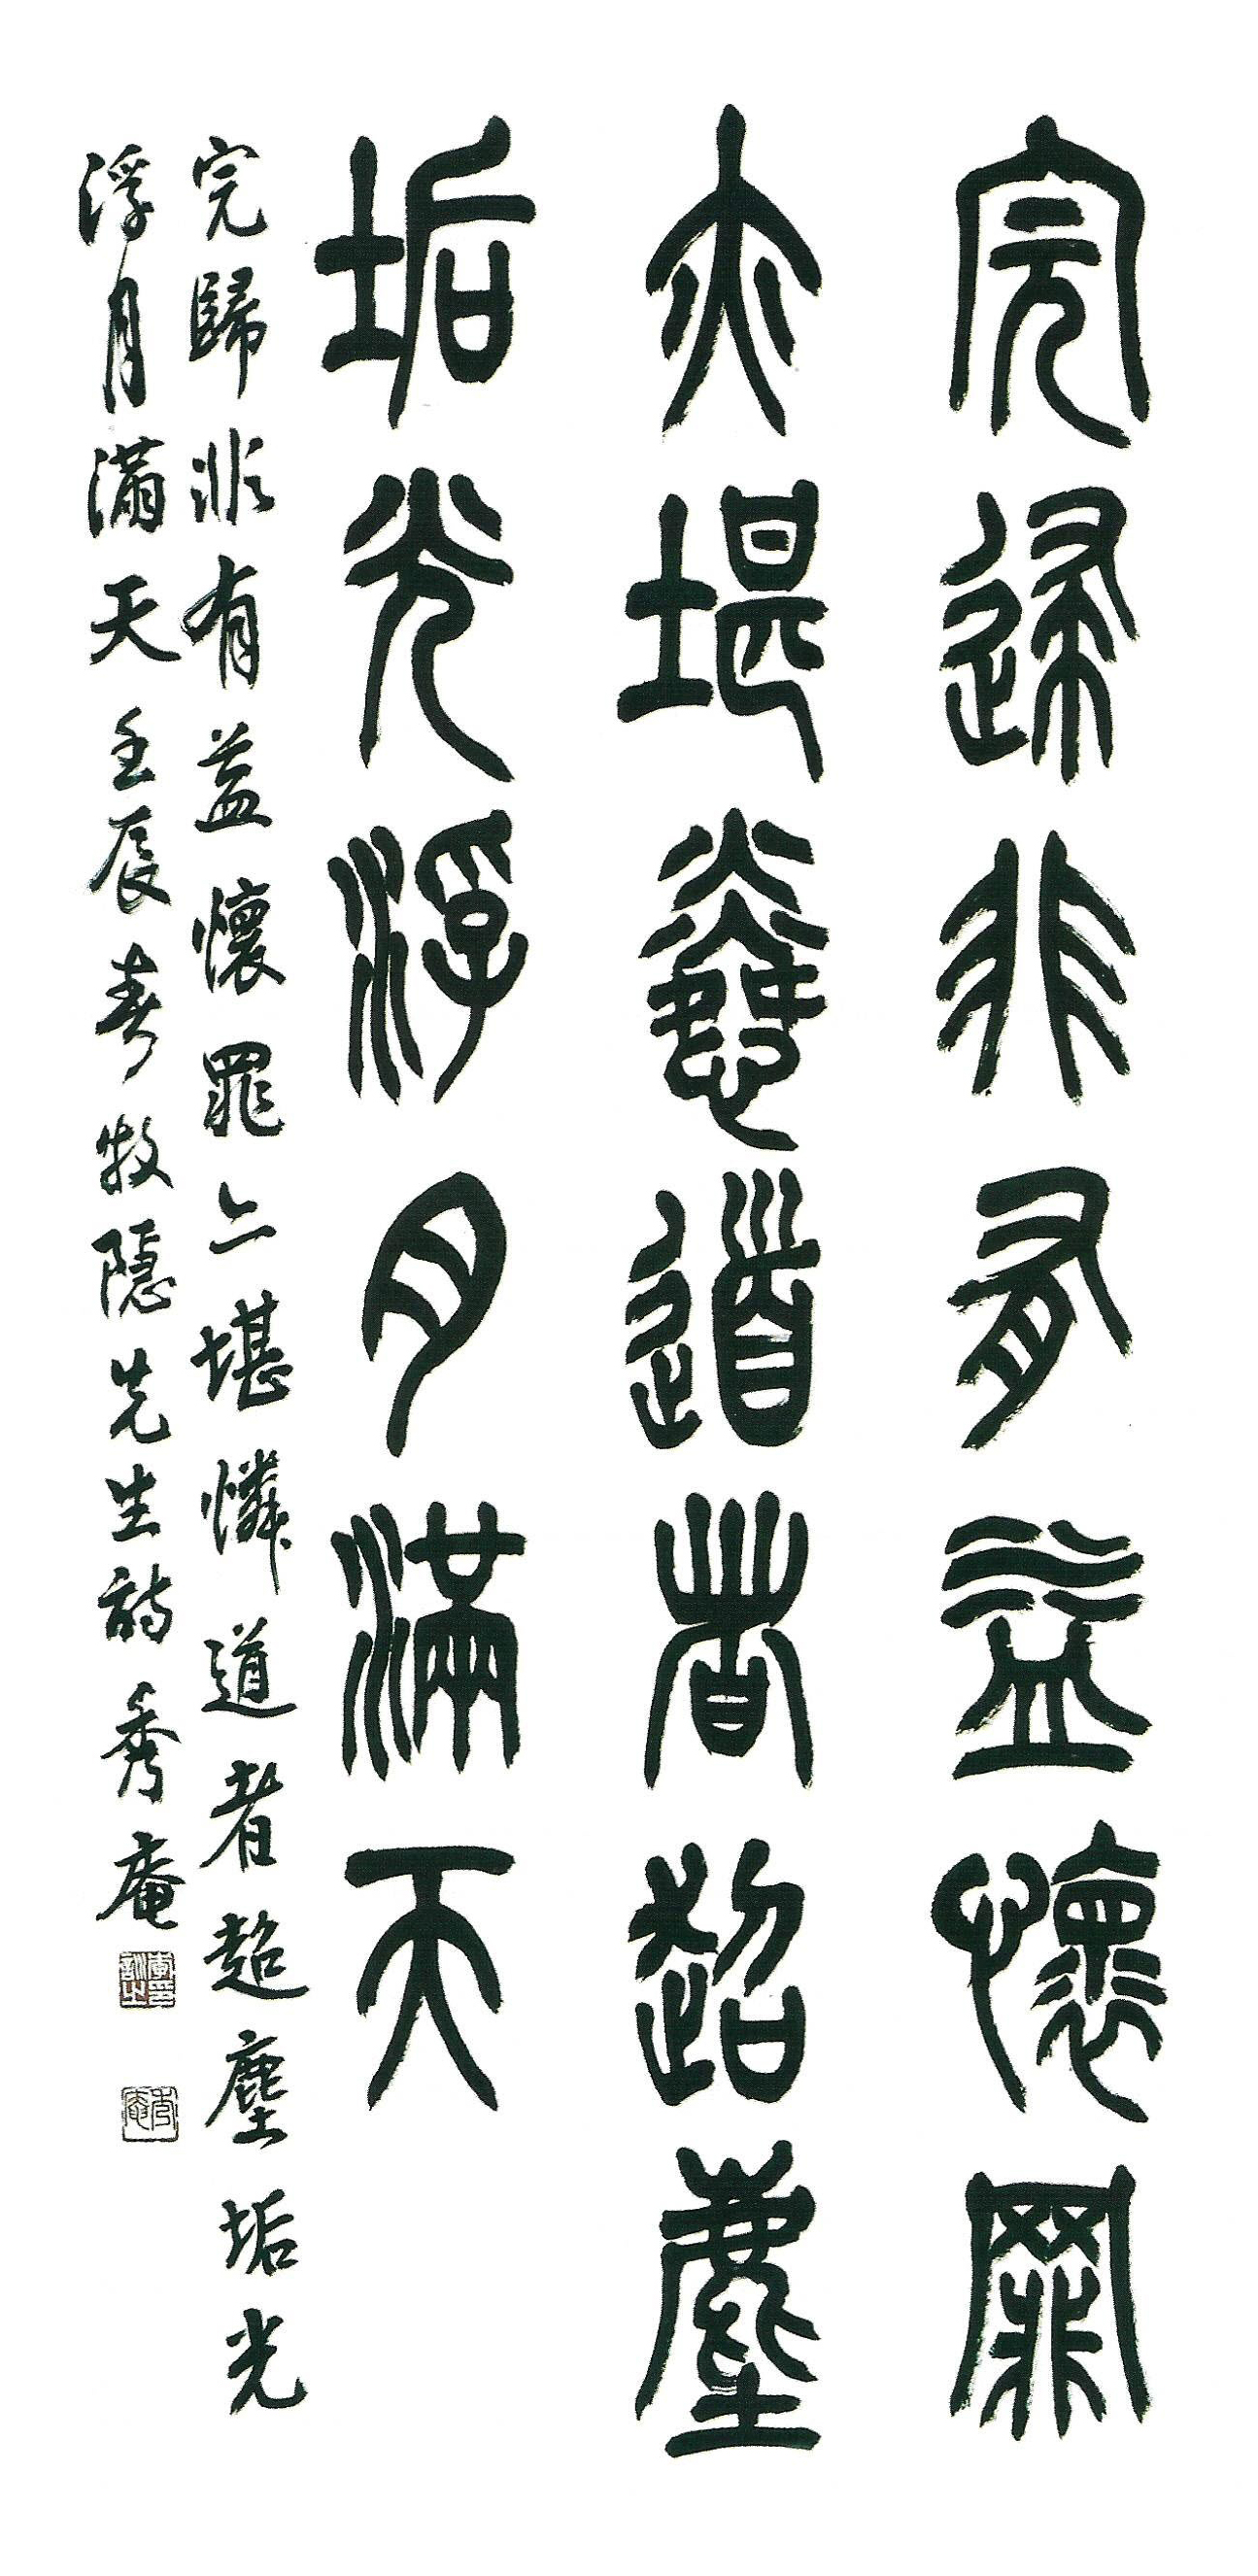 完歸非有益懷罪
亦堪憐道者超塵
垢光浮月滿天
完歸非有益懷罪亦堪憐道者超塵垢光
浮月滿天 壬辰春 牧隱先生詩 秀庵